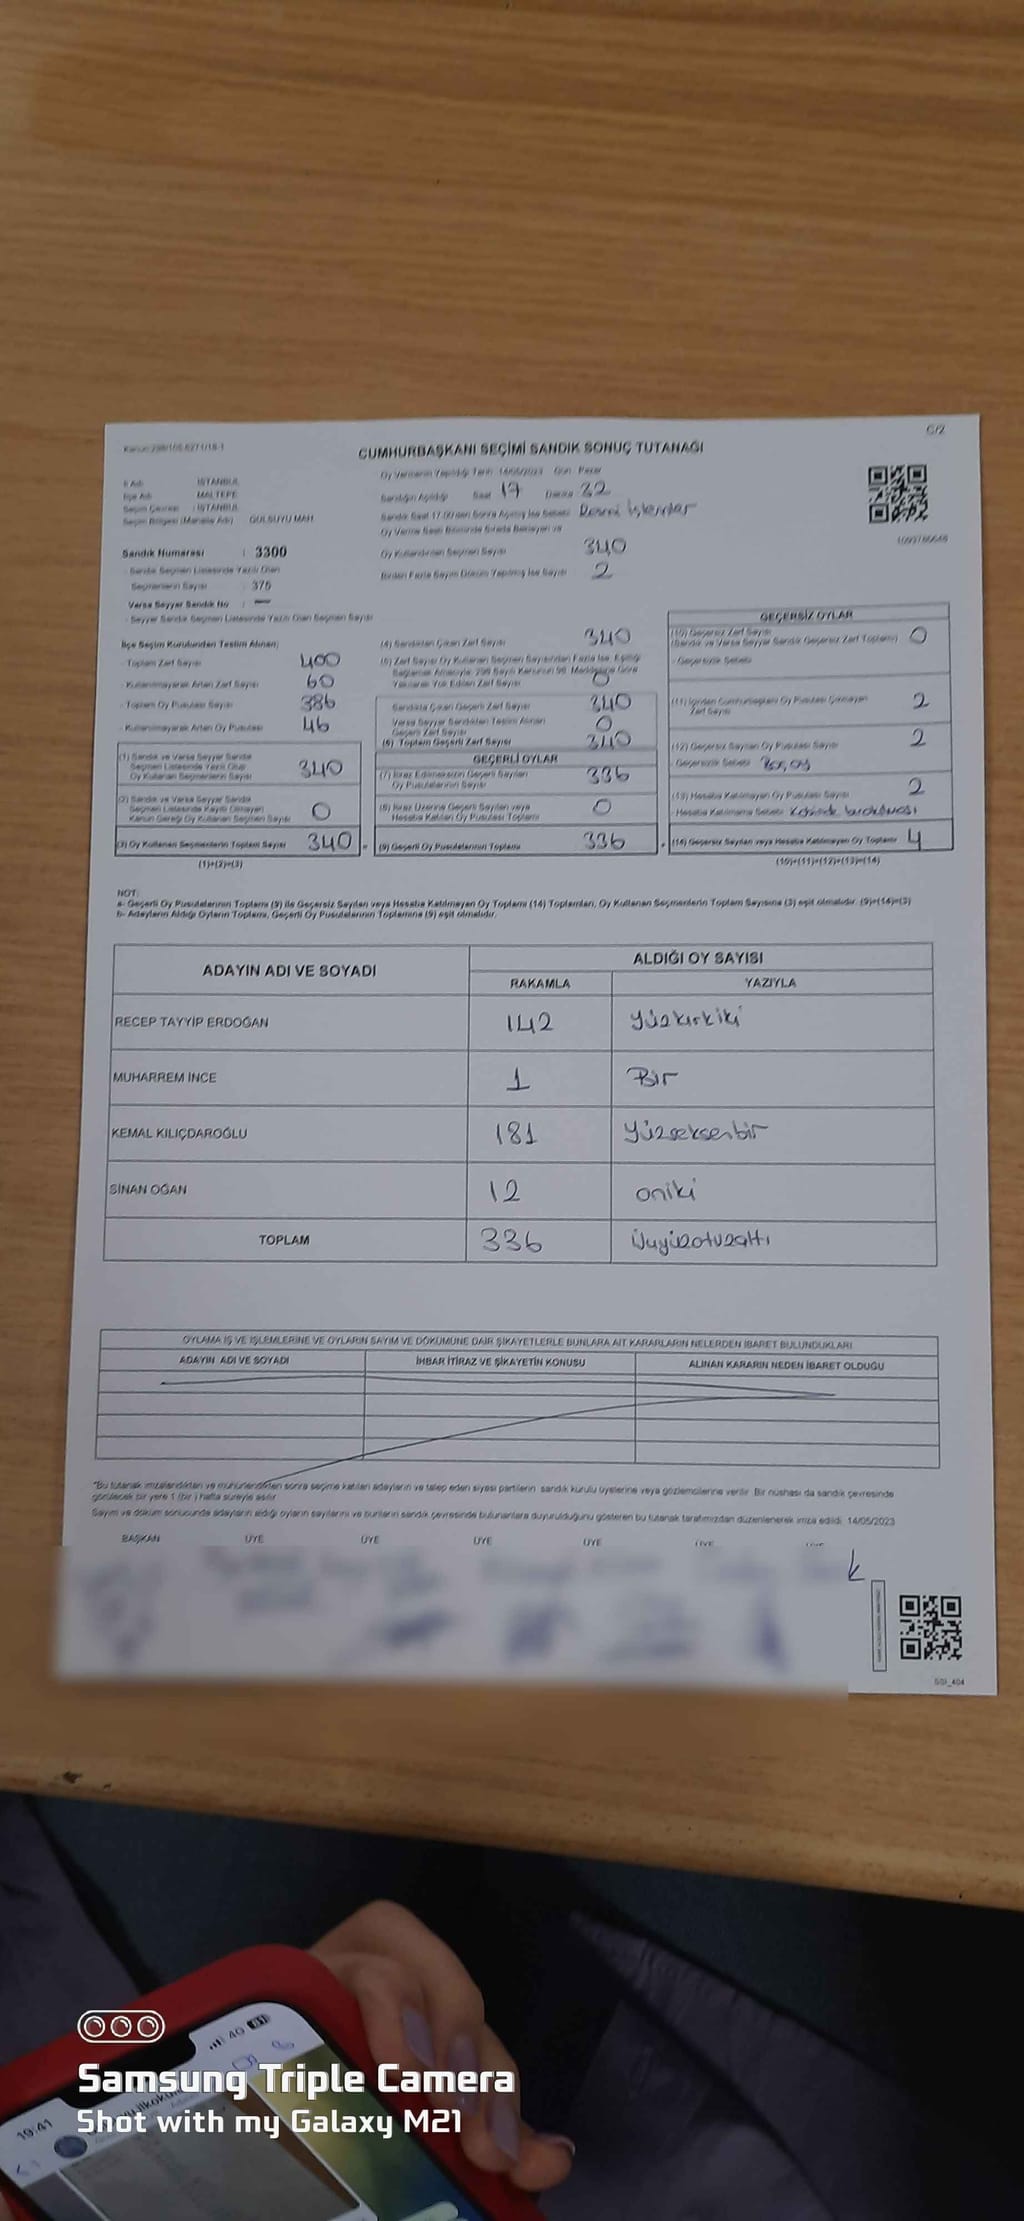 C/2
CUMHURBAŞKANI SEÇİMİ SANDIK SONUÇ TUTANAĞI
Oy Vermenin Yapıldığı Tarih 14/05/2023 Gün Pazar
İl Adı İSTANBUL
İlçe Adı MALTEPE
Seçim Çevresi : İSTANBUL
Seçim Bölgesi (Mahalle Adı) GÜLSUYU MAH
Sandığın Açıldığı Saat 17 Dakika 32
Sandık Saat 17:00'den Sonra Açılmış İse Sebebi Resmi İşlemler
Oy Verme Saati Bitiminde Sırada Bekleyen ve
Oy Kullandırılan Seçmen Sayısı 340
Birden Fazla Sayım Döküm Yapılmış İse Sayısı 2
Sandık Numarası : 3300
- Sandık Seçmen Listesinde Yazılı Olan
Seçmenlerin Sayısı : 375
Varsa Seyyar Sandık No : —
- Seyyar Sandık Seçmen Listesinde Yazılı Olan Seçmen Sayısı
İlçe Seçim Kurulundan Teslim Alınan;
- Toplam Zarf Sayısı 400
- Kullanılmayarak Artan Zarf Sayısı 60
- Toplam Oy Pusulası Sayısı 386
- Kullanılmayarak Artan Oy Pusulası 46
(1) Sandık ve Varsa Seyyar Sandık
Seçmen Listesinde Yazılı Olup
Oy Kullanan Seçmenlerin Sayısı 340
(2) Sandık ve Varsa Seyyar Sandık
Seçmen Listesinde Kayıtlı Olmayan
Kanun Gereği Oy Kullanan Seçmen Sayısı 0
(3) Oy Kullanan Seçmenlerin Toplam Sayısı 340
(1)+(2)=(3)
(4) Sandıktan Çıkan Zarf Sayısı 340
(5) Zarf Sayısı Oy Kullanan Seçmen Sayısından Fazla İse, Eşitliği
Sağlamak Amacıyla; 298 Sayılı Kanunun 98. Maddesine Göre
Yakılarak Yok Edilen Zarf Sayısı 0
Sandıkta Çıkan Geçerli Zarf Sayısı 340
Varsa Seyyar Sandıktan Teslim Alınan
Geçerli Zarf Sayısı 0
(6) Toplam Geçerli Zarf Sayısı 340
GEÇERLİ OYLAR
(7) İtiraz Edilmeksizin Geçerli Sayılan
Oy Pusulalarının Sayısı 336
(8) İtiraz Üzerine Geçerli Sayılan veya
Hesaba Katılan Oy Pusulası Toplamı 0
(9) Geçerli Oy Pusulalarının Toplamı 336
GEÇERSİZ OYLAR
(10) Geçersiz Zarf Sayısı
(Sandık ve Varsa Seyyar Sandık Geçersiz Zarf Toplamı) 0
- Geçersizlik Sebebi
(11) İçinden Cumhurbaşkanı Oy Pusulası Çıkmayan
Zarf Sayısı 2
(12) Geçersiz Sayılan Oy Pusulası Sayısı 2
- Geçersizlik Sebebi Boş oy
(13) Hesaba Katılmayan Oy Pusulası Sayısı 2
- Hesaba Katılmama Sebebi
(14) Geçersiz Sayılan veya Hesaba Katılmayan Oy Toplamı 4
(10)+(11)+(12)+(13)=(14)
NOT:
a- Geçerli Oy Pusulalarının Toplamı (9) ile Geçersiz Sayılan veya Hesaba Katılmayan Oy Toplamı (14) Toplamları, Oy Kullanan Seçmenlerin Toplam Sayısına (3) eşit olmalıdır. (9)+(14)=(3)
b- Adayların Aldığı Oyların Toplamı, Geçerli Oy Pusulalarının Toplamına (9) eşit olmalıdır.
ADAYIN ADI VE SOYADI ALDIĞI OY SAYISI
RAKAMLA YAZIYLA
RECEP TAYYİP ERDOĞAN 142 Yüzkırkiki
MUHARREM İNCE 1 Bir
KEMAL KILIÇDAROĞLU 181 Yüzseksenbir
SİNAN OĞAN 12 oniki
TOPLAM 336 Üçyüzotuzaltı
OYLAMA İŞ VE İŞLEMLERİNE VE OYLARIN SAYIM VE DÖKÜMÜNE DAİR ŞİKAYETLERLE BUNLARA AİT KARARLARIN NELERDEN İBARET BULUNDUKLARI
ADAYIN ADI VE SOYADI İHBAR İTİRAZ VE ŞİKAYETİN KONUSU ALINAN KARARIN NEDEN İBARET OLDUĞU
*Bu tutanak imzalandıktan ve mühürlendikten sonra seçime katılan adayların ve talep eden siyasi partilerin sandık kurulu üyelerine veya gözlemcilerine verilir. Bir nüshası da sandık çevresinde
görülecek bir yere 1 (bir ) hafta süreyle asılır.
Sayım ve döküm sonucunda adayların aldığı oyların sayılarını ve bunların sandık çevresinde bulunanlara duyurulduğunu gösteren bu tutanak tarafımızdan düzenlenerek imza edildi. 14/05/2023
BAŞKAN ÜYE ÜYE ÜYE ÜYE ÜYE
19:41
4G 81
Samsung Triple Camera
Shot with my Galaxy M21